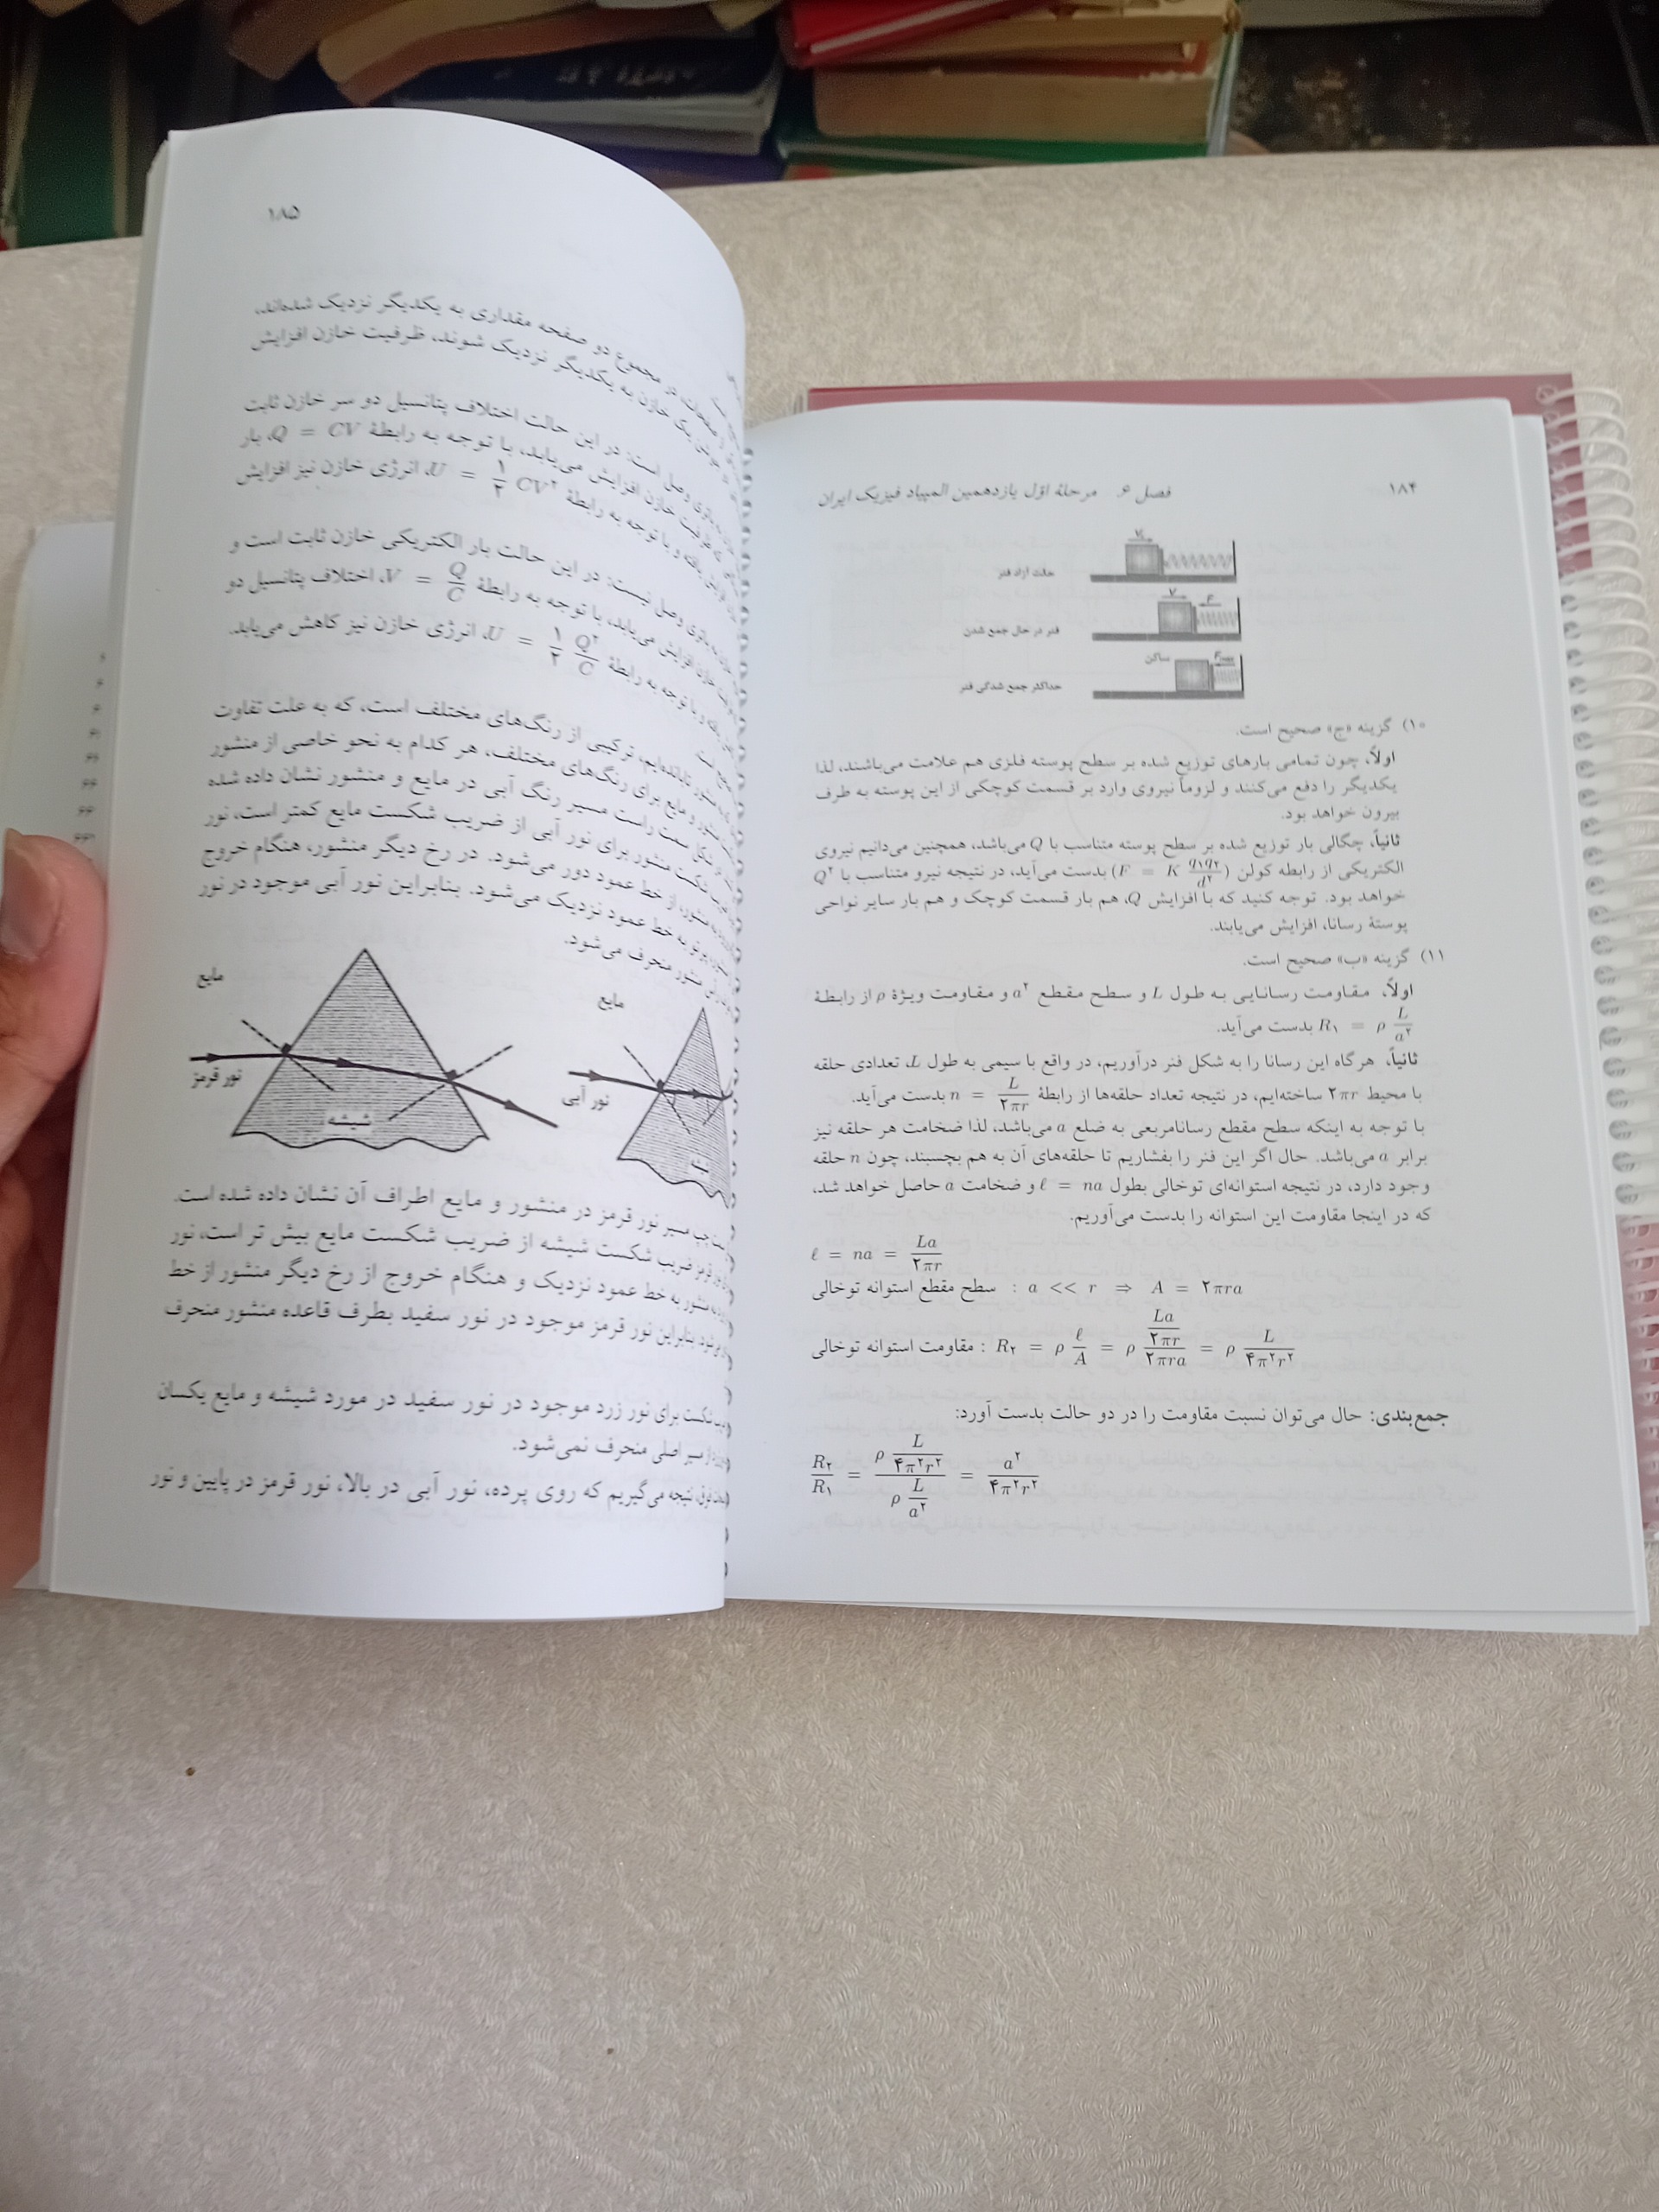 ۱۸۴
فصل ۶ مرحلهٔ اوّل یازدهمین المپیاد فیزیک ایران
V.
حالت آزاد فنر
V F
فنر در حال جمع شدن
ساکن Fmax
حداکثر جمع شدگی فنر
۱۰) گزینه «ج» صحیح است.
اولاً، چون تمامی بارهای توزیع شده بر سطح پوسته فلزی هم علامت می‌باشند، لذا
یکدیگر را دفع می‌کنند و لزوماً نیروی وارد بر قسمت کوچکی از این پوسته به طرف
بیرون خواهد بود.
ثانیاً، چگالی بار توزیع شده بر سطح پوسته متناسب با Q می‌باشد، همچنین می‌دانیم نیروی
الکتریکی از رابطه کولن (F = K q۱q۲/d۲) بدست می‌آید، در نتیجه نیرو متناسب با Q۲
خواهد بود. توجه کنید که با افزایش Q، هم بار قسمت کوچک و هم بار سایر نواحی
پوستهٔ رسانا، افزایش می‌یابند.
۱۱) گزینه «ب» صحیح است.
اولاً، مقاومت رسانایی به طول L و سطح مقطع a۲ و مقاومت ویژهٔ ρ از رابطهٔ
R۱ = ρ L/a۲ بدست می‌آید.
ثانیاً، هرگاه این رسانا را به شکل فنر درآوریم، در واقع با سیمی به طول L، تعدادی حلقه
با محیط ۲πr ساخته‌ایم، در نتیجه تعداد حلقه‌ها از رابطهٔ n = L/۲πr بدست می‌آید.
با توجه به اینکه سطح مقطع رسانامربعی به ضلع a می‌باشد، لذا ضخامت هر حلقه نیز
برابر a می‌باشد. حال اگر این فنر را بفشاریم تا حلقه‌های آن به هم بچسبند، چون n حلقه
وجود دارد، در نتیجه استوانه‌ای توخالی بطول ℓ = na و ضخامت a حاصل خواهد شد،
که در اینجا مقاومت این استوانه را بدست می‌آوریم.
ℓ = na = La/۲πr
سطح مقطع استوانه توخالی : a << r ⇒ A = ۲πra
مقاومت استوانه توخالی : R۲ = ρ ℓ/A = ρ (La/۲πr)/۲πra = ρ L/۴π۲r۲
جمع‌بندی: حال می‌توان نسبت مقاومت را در دو حالت بدست آورد:
R۲/R۱ = (ρ L/۴π۲r۲)/(ρ L/a۲) = a۲/۴π۲r۲
۱۸۵
در مجموع دو صفحه مقداری به یکدیگر نزدیک شده‌اند،
یک خازن به یکدیگر نزدیک شوند، ظرفیت خازن افزایش
وصل است: در این حالت اختلاف پتانسیل دو سر خازن ثابت
ظرفیت خازن افزایش می‌یابد، با توجه به رابطهٔ Q = CV، بار
یافته و با توجه به رابطهٔ U = ۱/۲ CV۲، انرژی خازن نیز افزایش
باتری وصل نیست: در این حالت بار الکتریکی خازن ثابت است و
خازن افزایش می‌یابد، با توجه به رابطهٔ V = Q/C، اختلاف پتانسیل دو
یافته و با توجه به رابطهٔ U = ۱/۲ Q۲/C، انرژی خازن نیز کاهش می‌یابد.
منشور تابانده‌ایم، ترکیبی از رنگ‌های مختلف است، که به علت تفاوت
منشور و مایع برای رنگ‌های مختلف، هر کدام به نحو خاصی از منشور
شکل سمت راست مسیر رنگ آبی در مایع و منشور نشان داده شده
شکست منشور برای نور آبی از ضریب شکست مایع کمتر است، نور
منشور، از خط عمود دور می‌شود. در رخ دیگر منشور، هنگام خروج
پرتو به خط عمود نزدیک می‌شود. بنابراین نور آبی موجود در نور
منشور منحرف می‌شود.
مایع
نور آبی
مایع
نور قرمز
شیشه
مسیر نور قرمز در منشور و مایع اطراف آن نشان داده شده است.
نور قرمز ضریب شکست شیشه از ضریب شکست مایع بیش تر است، نور
منشور به خط عمود نزدیک و هنگام خروج از رخ دیگر منشور از خط
بنابراین نور قرمز موجود در نور سفید بطرف قاعده منشور منحرف
شکست برای نور زرد موجود در نور سفید در مورد شیشه و مایع یکسان
از مسیر اصلی منحرف نمی‌شود.
فوق، نتیجه می‌گیریم که روی پرده، نور آبی در بالا، نور قرمز در پایین و نور